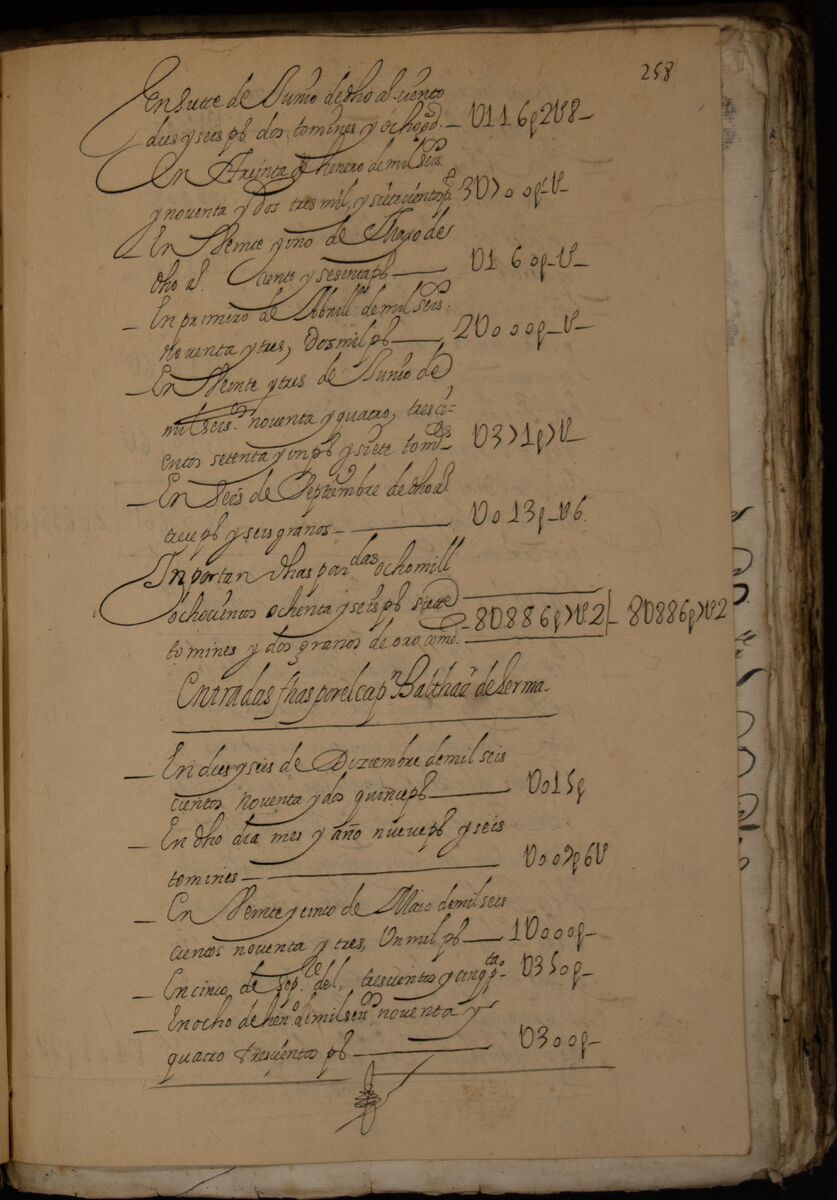 258
En Siete de Junio de dho al. ciento
dies y seis ps. dos tomines y ocho gd. — U116p2U8—
En Treinta de henero de mil seisos
y noventa y dos tres mil, y sietecientos ps. 3U700p—U—
— En Veinte y uno de Maro de
dho al. Ciento y sesenta ps — U160p—U—
— En primero de Abrill de mil seisos.
noventa y tres, Dos mil ps — 2U000p—U—
— En Veinte y tres de Junio de
mil seisos. noventa y quatro, tresci-
entos setenta y un ps y siete toms — U371p7U—
— En Seis de Septiembre de dho al
trece ps y seis granos. — U013p—U6.
Inportan dhas pardas ocho mill
ochocientos ochenta y seis ps siette
tomines y dos granos de oro como — 8U886p7U2 — 8U886p7U2
Entradas fhas por el capn Balthar de Lerma.
— En dies y seis de Diziembre de mil seis
cientos noventa y dos quince ps — U015p
— En dho dia mes y año nueve ps y seis
tomines — U009p6U
— En Veinte y cinco de Maio de mil seis
cientos noventa y tres, Un mil ps — 1U000p—
— En cinco de Sepe. del, trescientos y cinqta ps. U350p—
— En ocho de heno. de mil seisos. noventa y
quatro trescientos ps — U300p—